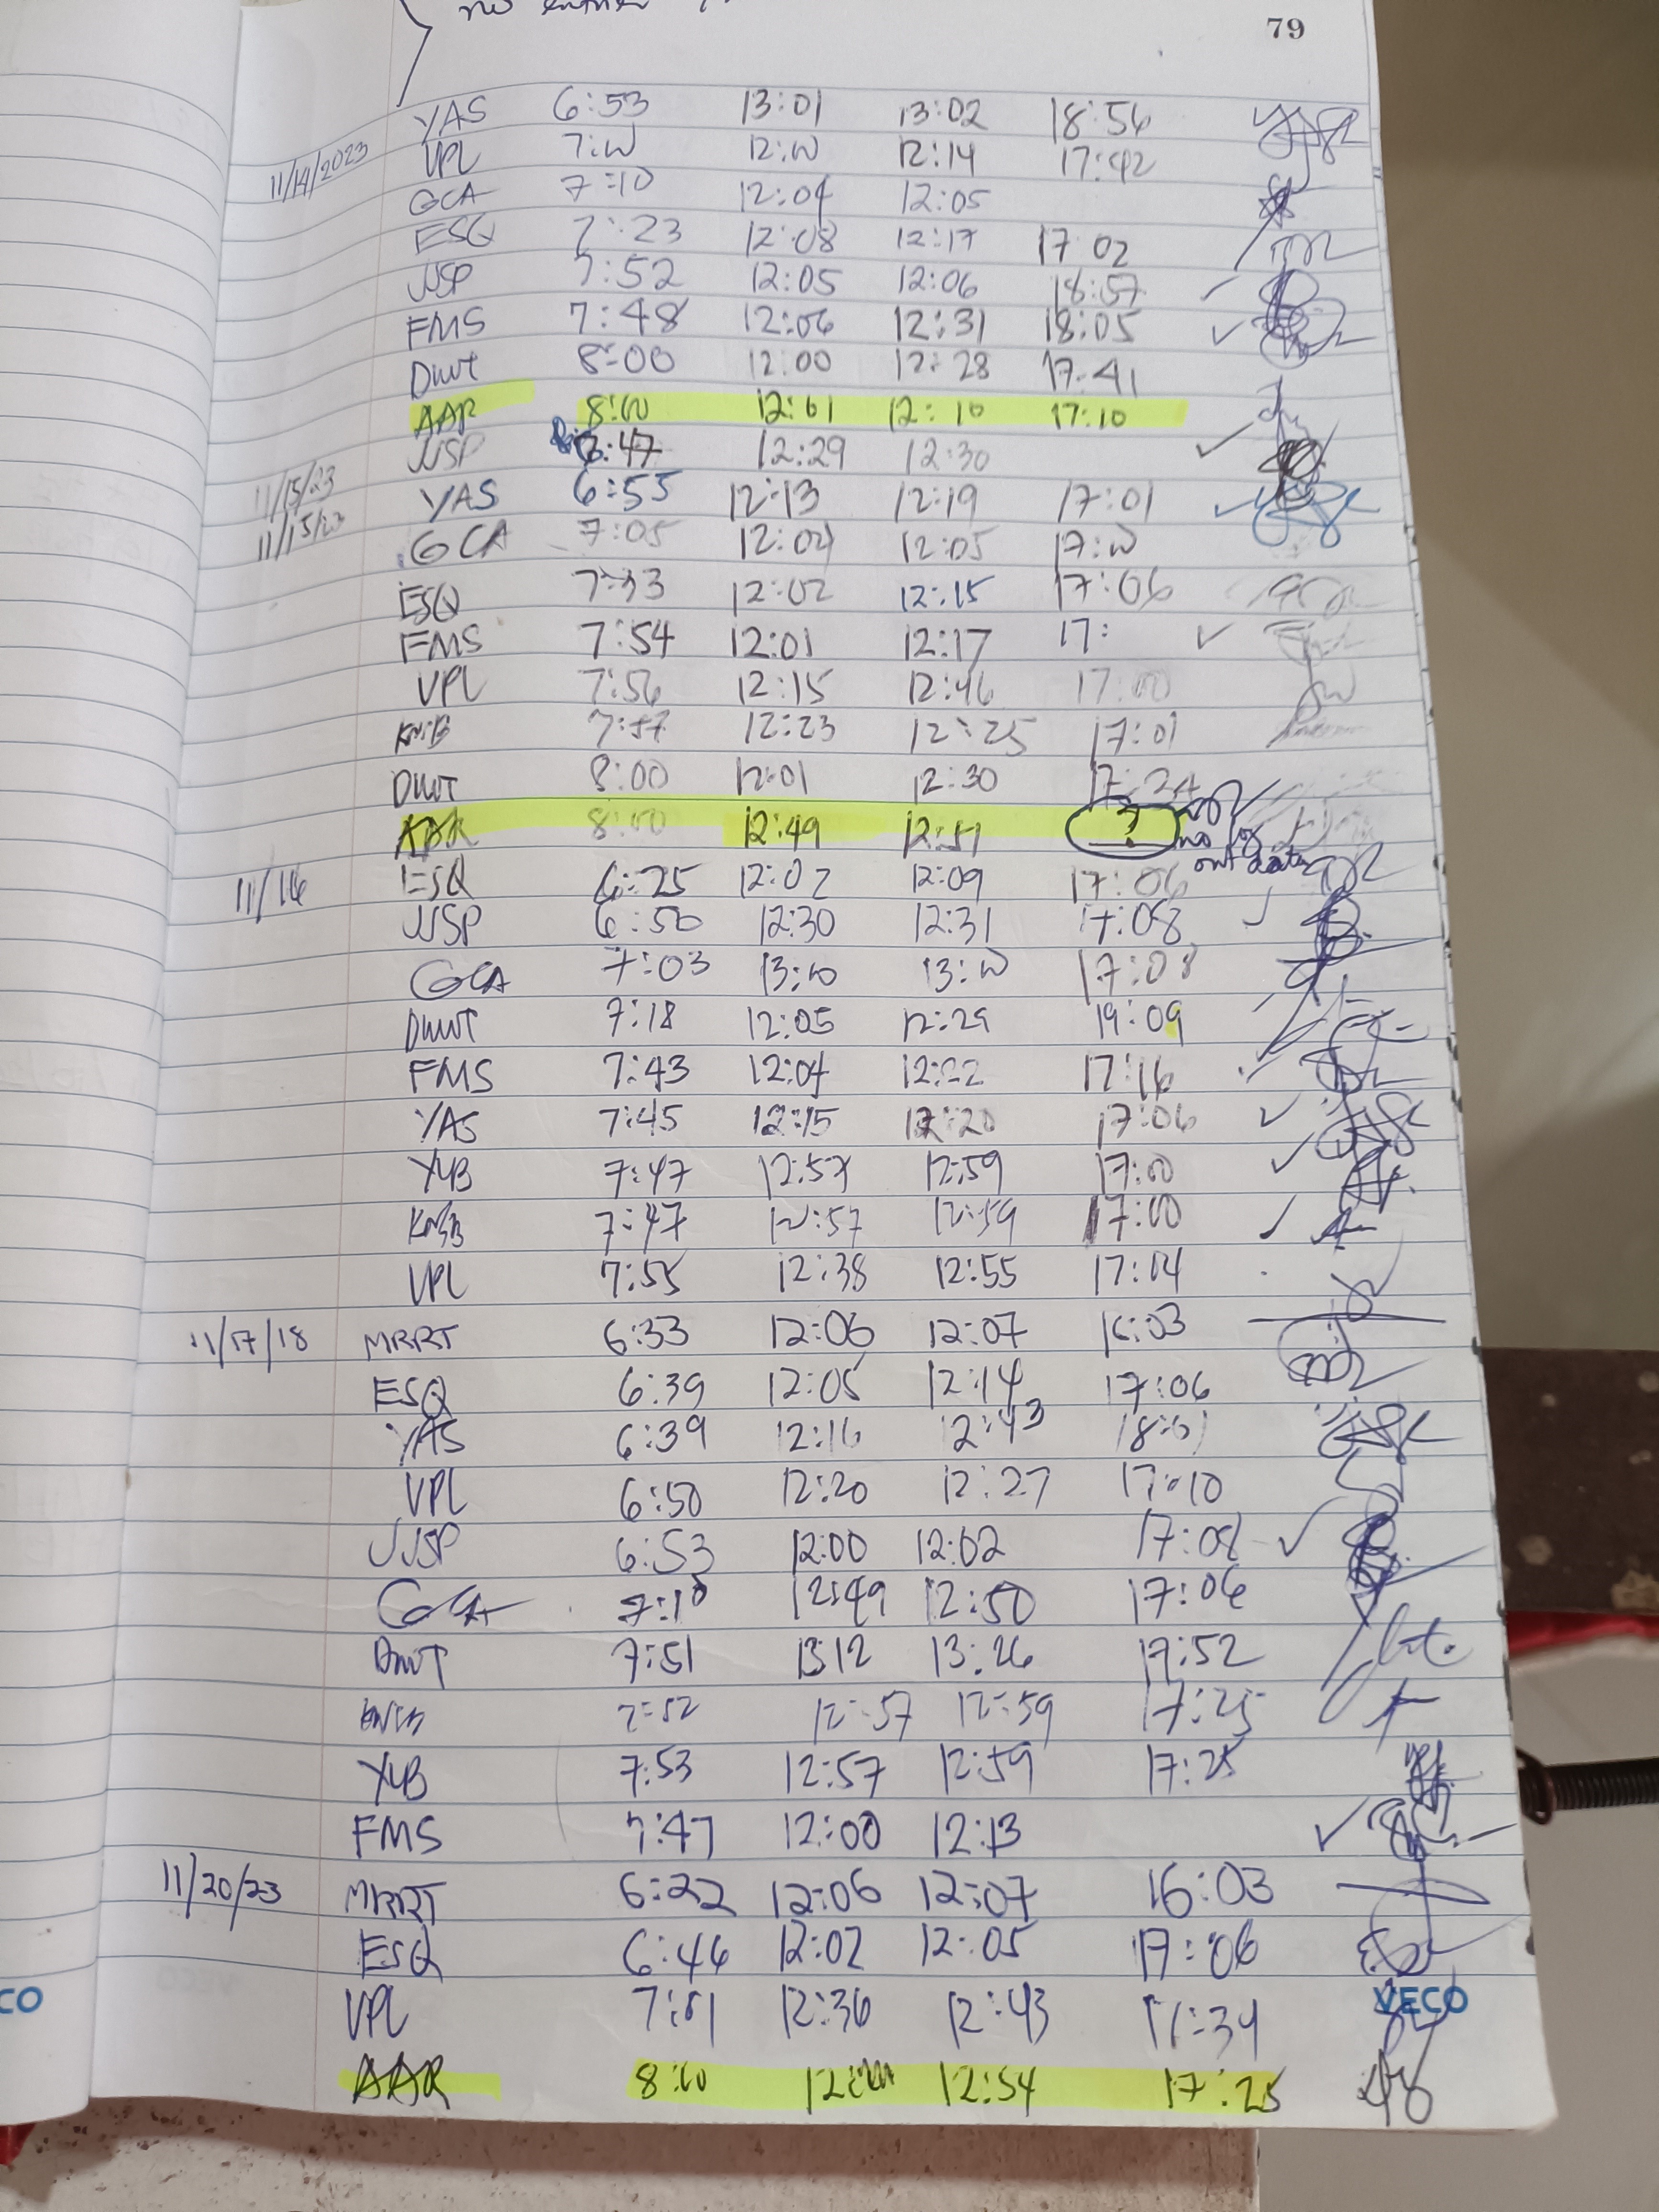 no entries
79
YAS 6:53 13:01 13:02 18:56
11/14/2023 VPL 7:00 12:00 12:14 17:42
GCA 7:10 12:04 12:05
ESQ 7:23 12:08 12:17 17:02
JJSP 7:52 12:05 12:06 18:57
FMS 7:48 12:06 12:31 18:05
DWT 8:00 12:00 12:28 17:41
AAR 8:00 12:01 12:10 17:10
11/15/23 JJSP 6:47 12:29 12:30
11/15/23 YAS 6:55 12:13 12:19 17:01
GCA 7:05 12:04 12:05 17:00
ESQ 7:33 12:02 12:15 17:06
FMS 7:54 12:01 12:17 17:
VPL 7:56 12:15 12:46 17:00
KMB 7:57 12:23 12:25 17:01
DWT 8:00 12:01 12:30 17:24
AAR 8:00 12:49 12:51 ? no log out data
11/16 ESQ 6:25 12:02 12:09 17:06
JJSP 6:50 12:30 12:31 17:08
GCA 7:03 13:00 13:00 17:08
DWT 7:18 12:05 12:29 19:09
FMS 7:43 12:04 12:22 17:16
YAS 7:45 12:15 12:20 17:06
YYB 7:47 12:57 12:59 17:00
KMB 7:47 12:57 12:59 17:00
VPL 7:55 12:38 12:55 17:04
11/17/18 MRRT 6:33 12:06 12:07 16:03
ESQ 6:39 12:05 12:14 17:06
YAS 6:39 12:16 12:43 18:01
VPL 6:50 12:20 12:27 17:10
JJSP 6:53 12:00 12:02 17:08
GCA 7:10 12:49 12:50 17:06
DWT 7:51 1312 13:26 17:52
KMB 7:52 12:57 12:59 17:25
YYB 7:53 12:57 12:59 17:25
FMS 7:47 12:00 12:13
11/20/23 MRRT 6:22 12:06 12:07 16:03
ESQ 6:46 12:02 12:05 17:06
VPL 7:01 12:36 12:43 17:34
CO VECO
AAR 8:00 12:54 17:25